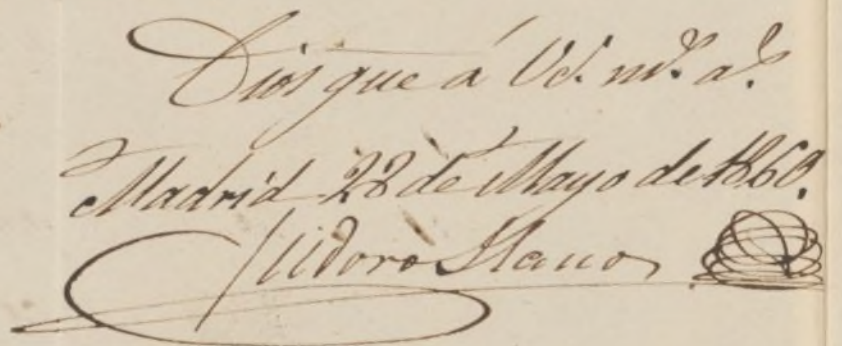 Dios gue á Vd. ms. as.
Madrid 28 de Mayo de 1860.
Isidoro Llanos